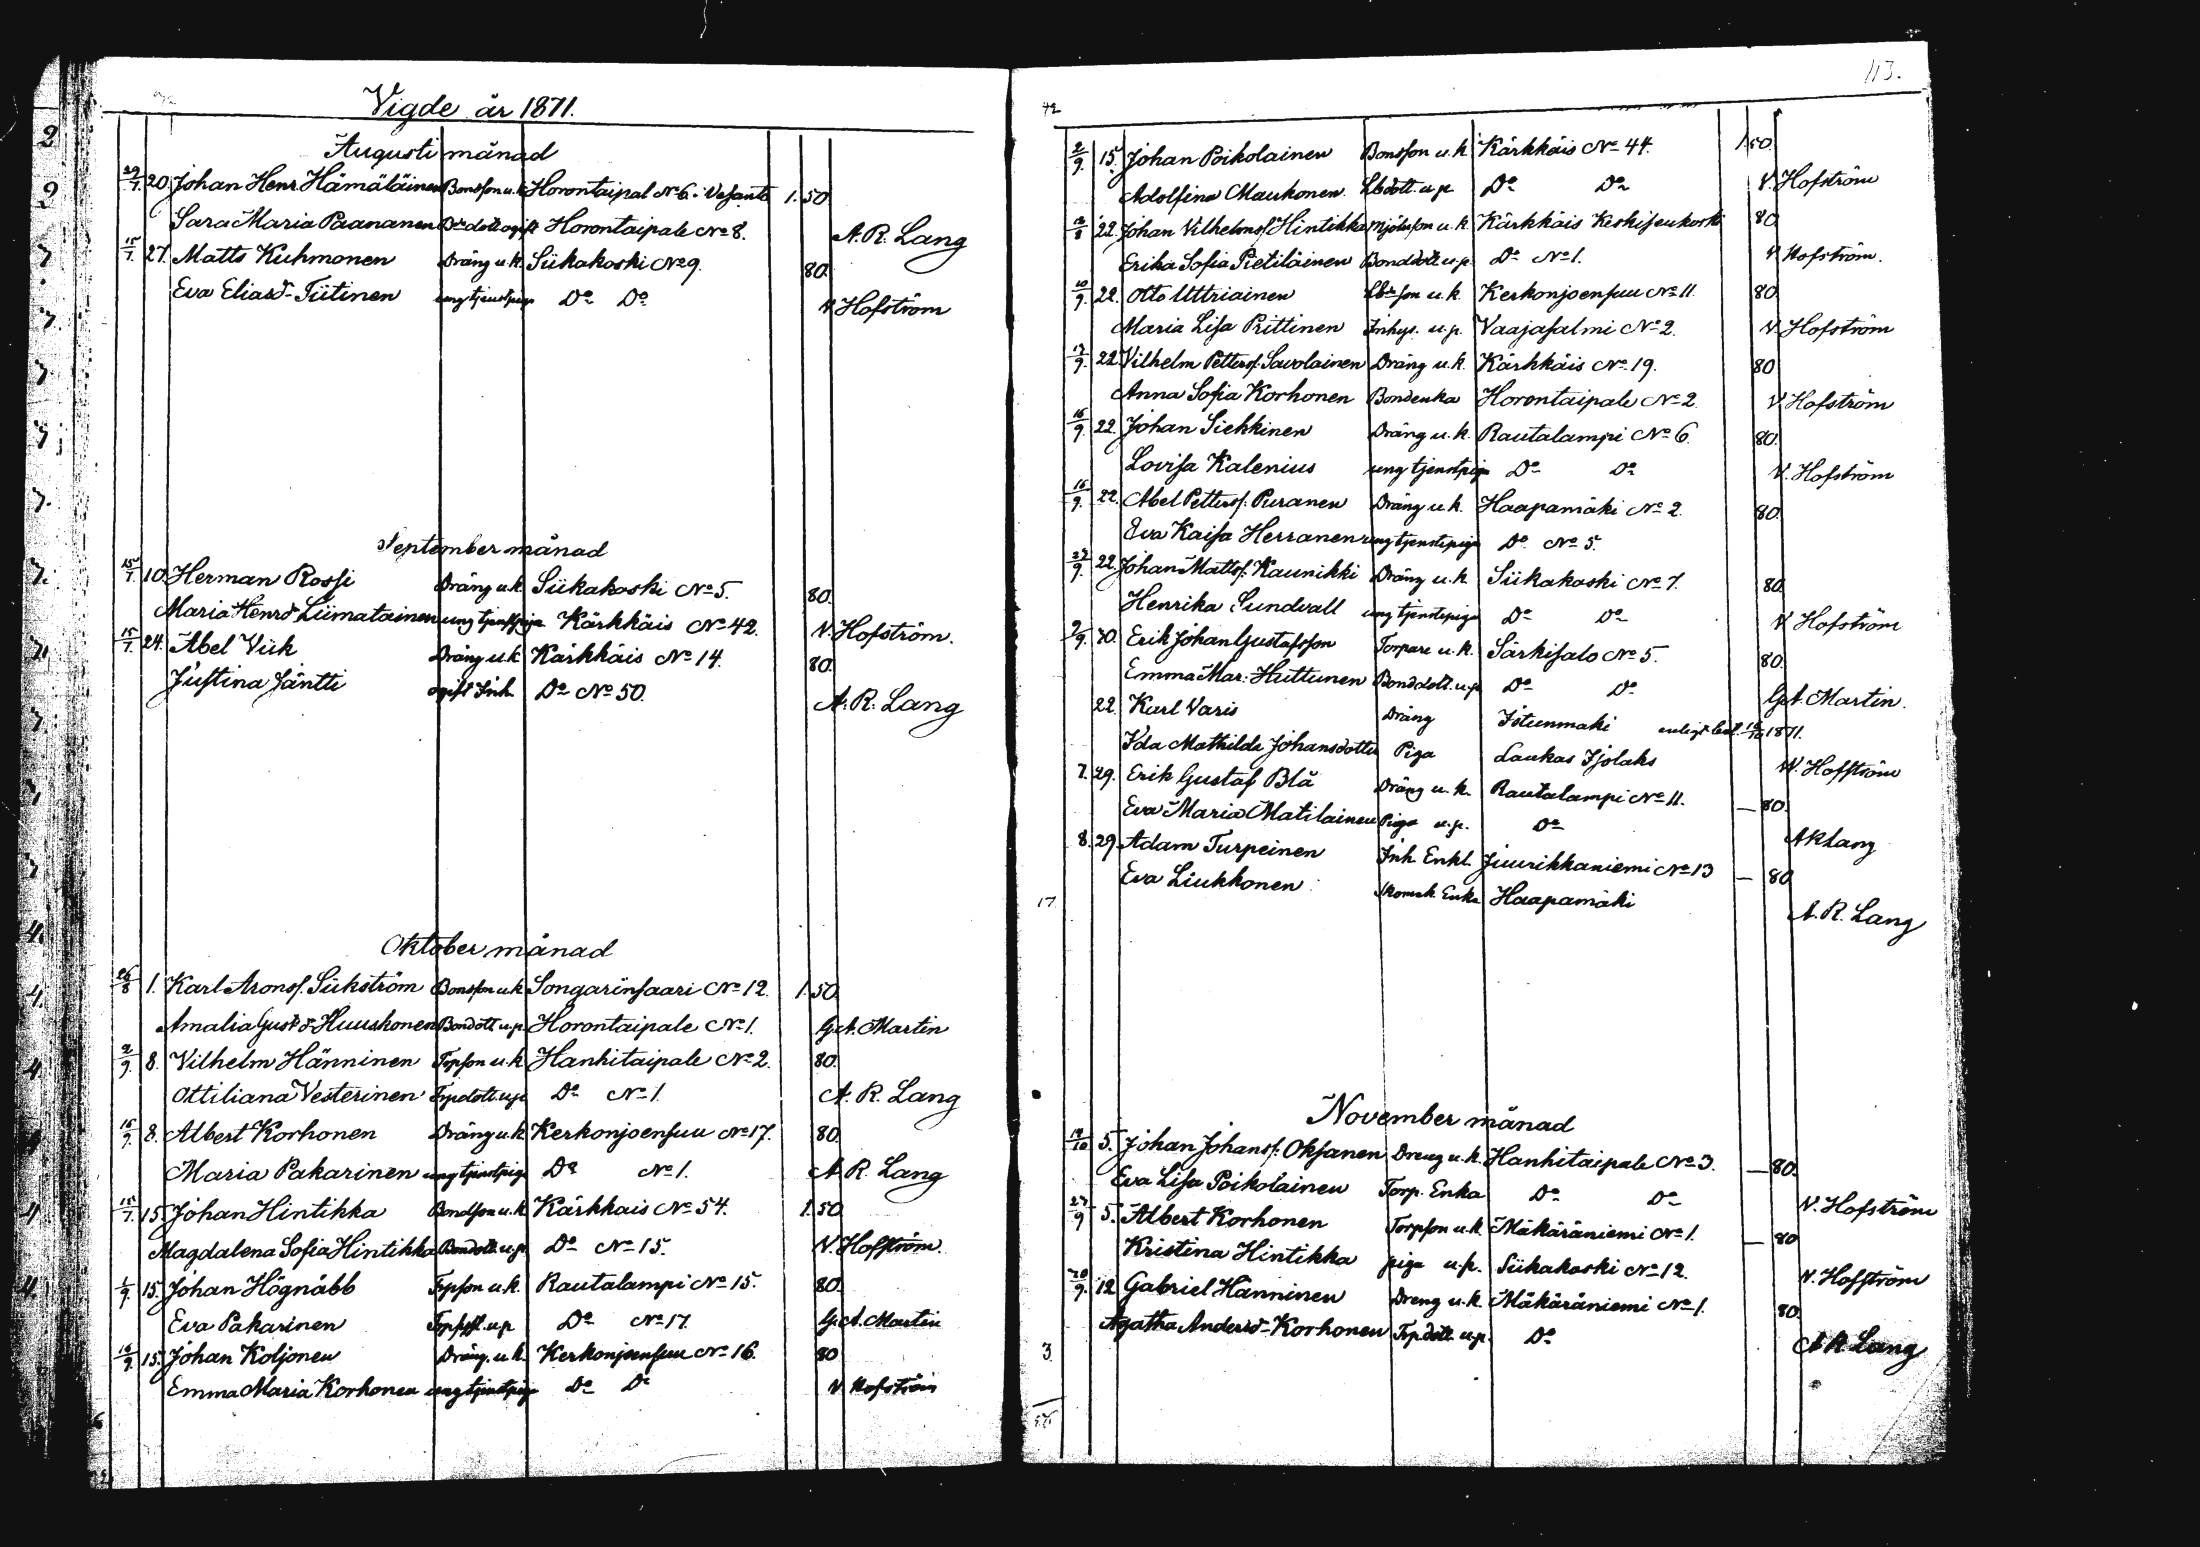 Vigde år 1871.
Augusti månad
29/7. 20. Johan Henr Hämäläinen Bonsson u.k. Horontaipal No 6. Vesanto 1. 50
Sara Maria Paananen Bdedott ogift Horontaipale No 8. A. R. Lang
15/7. 27. Matts Kuhmonen Dräng u.k. Siikakoski No 9. 80.
Eva Eliasd. Tiitinen ung tjenstpiga Do Do N Hofström
September månad
15/7. 10. Herman Rossi Dräng u.k. Siikakoski No 5. 80.
Maria Henrsd Liimatainen ung tjenstpiga Kärkkäis No 42. N. Hofström.
15/7. 24. Abel Viik Dräng u.k. Kärkkäis No 14. 80.
Justina Jäntti ogift Inh. Do No 50. A. R. Lang
Oktober månad
26/8 1. Karl Aronss. Siikström Bonsson u.k. Songarinsaari No 12. 1. 50.
Amalia Gust.d Huuskonen Bondott u.p. Horontaipale No 1. G. A. Martin
2/9. 8. Vilhelm Hänninen Torpson u.k. Hanhitaipale No 2. 80.
Ottiliana Vesterinen Trpdott. u.p. Do No 1. A. R. Lang
16/9. 8. Albert Korhonen Dräng u.k. Kerkonjoensuu No 17. 80.
Maria Pakarinen ung tjenstpiga Do No 1. A R. Lang
15/7. 15. Johan Hintikka Bondson u.k. Kärkkais No 54. 1. 50
Magdalena Sofia Hintikka Bondott. u.p. Do No 15. N. Hofström.
1/9. 15. Johan Högnäbb Trpson u.k. Rautalampi No 15. 80.
Eva Pakarinen u.p Do No 17. G. A. Martin
16/9. 15. Johan Koljonen Dräng. u.k. Kerkonjoensuu No 16. 80
Emma Maria Korhonen ung tjenstpiga Do Do N. Hofström
113.
42
2/9. 15. Johan Poikolainen Bonsson u.k Kärkkäis No 44. 1. 50.
Adolfina Maukonen. Lbdott. u.p Do Do N. Hofström
22. Johan Vilhelmss Hintikka Mjölnson u.k. Kärkkäis Keskisenkoski 80
Erika Sofia Pietiläinen Bonddott u.p. Do No 1. N Hofström.
10/9. 22. Otto Uttriainen Lbdeson u.k. Kerkonjoensuu No 11. 80.
Maria Lisa Prittinen Inhys. u.p. Vaajasalmi No 2. N. Hofström
17/9. 22. Vilhelm Petterss. Savolainen Dräng u.k. Kärkkäis No 19. 80
Anna Sofia Korhonen Bondenka Horontaipale No 2. N Hofström
16/9. 22. Johan Siekkinen Dräng u.k. Rautalampi No 6. 80.
Lovisa Kalenius ung tjenstpiga Do Do N. Hofström
16/9. 22. Abel Petterss. Puranen Dräng u.k. Haapamäki No 2. 80.
Eva Kaisa Herranen ung tjenstepiga Do No 5.
27/9. 22. Johan Mattss. Kaunikki Dräng u.k. Siikakoski No 7. 80.
Henrika Sundvall ung tjenstepiga Do Do N Hofström
9/9. 30. Erik Johan Gustafsson Torpare u.k. Särkisalo No 5. 80.
Emma Mar. Huttunen Bonddott. u.p Do Do G. A. Martin.
22. Karl Varis Dräng Istunmäki enligt best. 1871.
Ida Mathilda Johansdotter Piga Laukas Tjolaks N. Hofström
7. 29. Erik Gustaf Blå Dräng u.k. Rautalampi No 11. — 80.
Eva Maria Matilainen Piga u.p. Do A R Lang
8. 29. Adam Turpeinen Inh. Enkl. Juurikkaniemi No 13 — 80
Eva Liukkonen Skomak. Enka Haapamäki A. R. Lang
17
November månad
19/10 5. Johan Johanss. Oksanen Dreng u.k. Hanhitaipale No 3. — 80.
Eva Lisa Poikolainen Torp. Enka Do Do N. Hofström
27/9 5. Albert Korhonen Torpson u.k. Mäkäräniemi No 1. — 80
Kristina Hintikka piga u.p. Siikakoski No 12. N. Hofström
20/9. 12. Gabriel Hänninen Dreng u.k. Mäkäräniemi No 1. 80.
Agatha Andersd. Korhonen Trpdott. u.p. Do A R Lang
3.